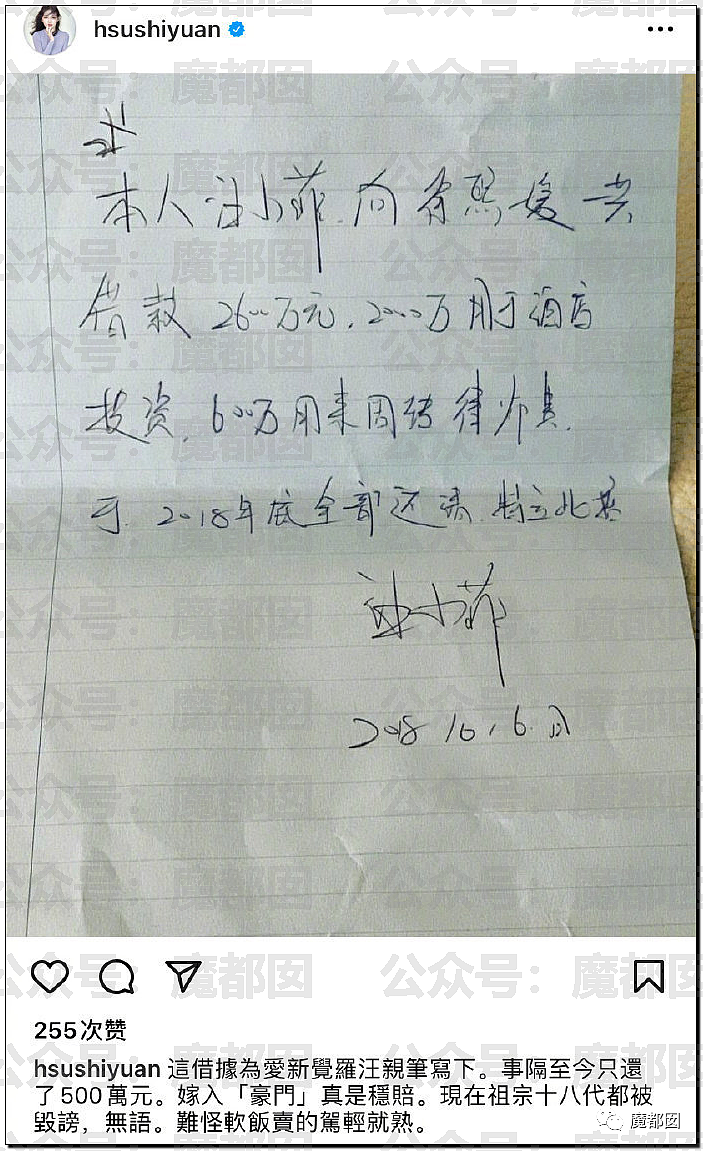 hsushiyuan
本人汪小菲.向徐熙媛共
借款 2600万元，2000万用于酒店
投资，600万用来周转律师费.
于.2018年底全部还清.特立此据
汪小菲
255次赞
hsushiyuan 這借據為愛新覺羅汪親筆寫下。事隔至今只還
了500萬元。嫁入「豪門」真是穩賠。現在祖宗十八代都被
毀謗，無語。難怪軟飯賣的駕輕就熟。
魔都囡
公众号：魔都囡